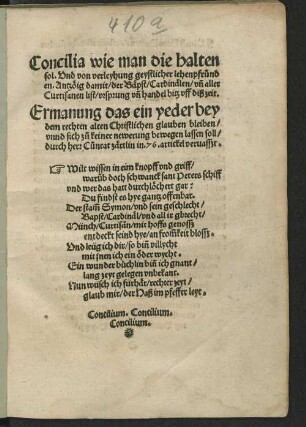 410 a
Concilia wie man die halten
sol. Und von verleyhung geystlicher lehenpfründ
en. Antzöig damit/ der Bäpst/ Cardinälen/ uñ aller
Curtisanen list/ ursprung uñ handel bitz uff diß zeit.
Ermanung das ein yeder bey
dem rechten alten Christlichen glauben bleiben/
unnd sich zů keiner newerung bewegen lassen soll/
durch herr Cůnrat zärtlin in .76. artickel verfasszt.
☞ Wilt wissen in eim knopff und greiff/
warůb doch schwanckt sant Peters schiff
und wer das hatt durchlöchert gar:
Du findst es hye gantz offenbar.
Der stam̃ Symon/ und sein geschlecht/
Bapst/ Cardinäl/ und all it gbrecht/
Münch/ Curtisän/ mit hoffs genossz
entdeckt seind hye/ an from̃keit blossz.
Und leüg ich dir/ so bin̄ villycht
mit inen ich ein öder wycht.
Ein wunder büchlin bin̄ ich gnant/
lang zeyt gelegen unbekant.
Nun wüsch ich fürhär/ rechter zeyt/
glaub mir/ der Haß im pfeffer leyt.
Concilium. Concilium.
Concilium.